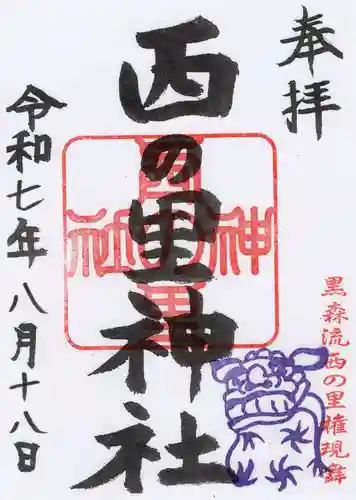 奉拝
西の里神社
令和七年八月十八日
黒森流西の里権現舞